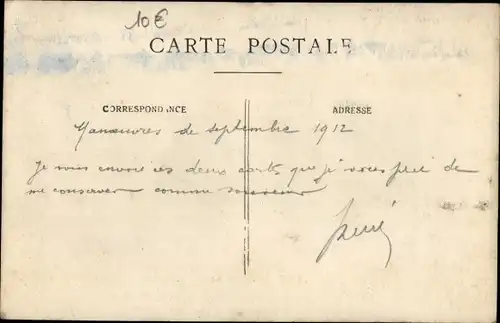 10€
CARTE POSTALE
CORRESPONDANCE
ADRESSE
Manœuvres de septembre 1912
Je vous envoie ces deux cartes que je vous prie de
me conserver comme souvenir